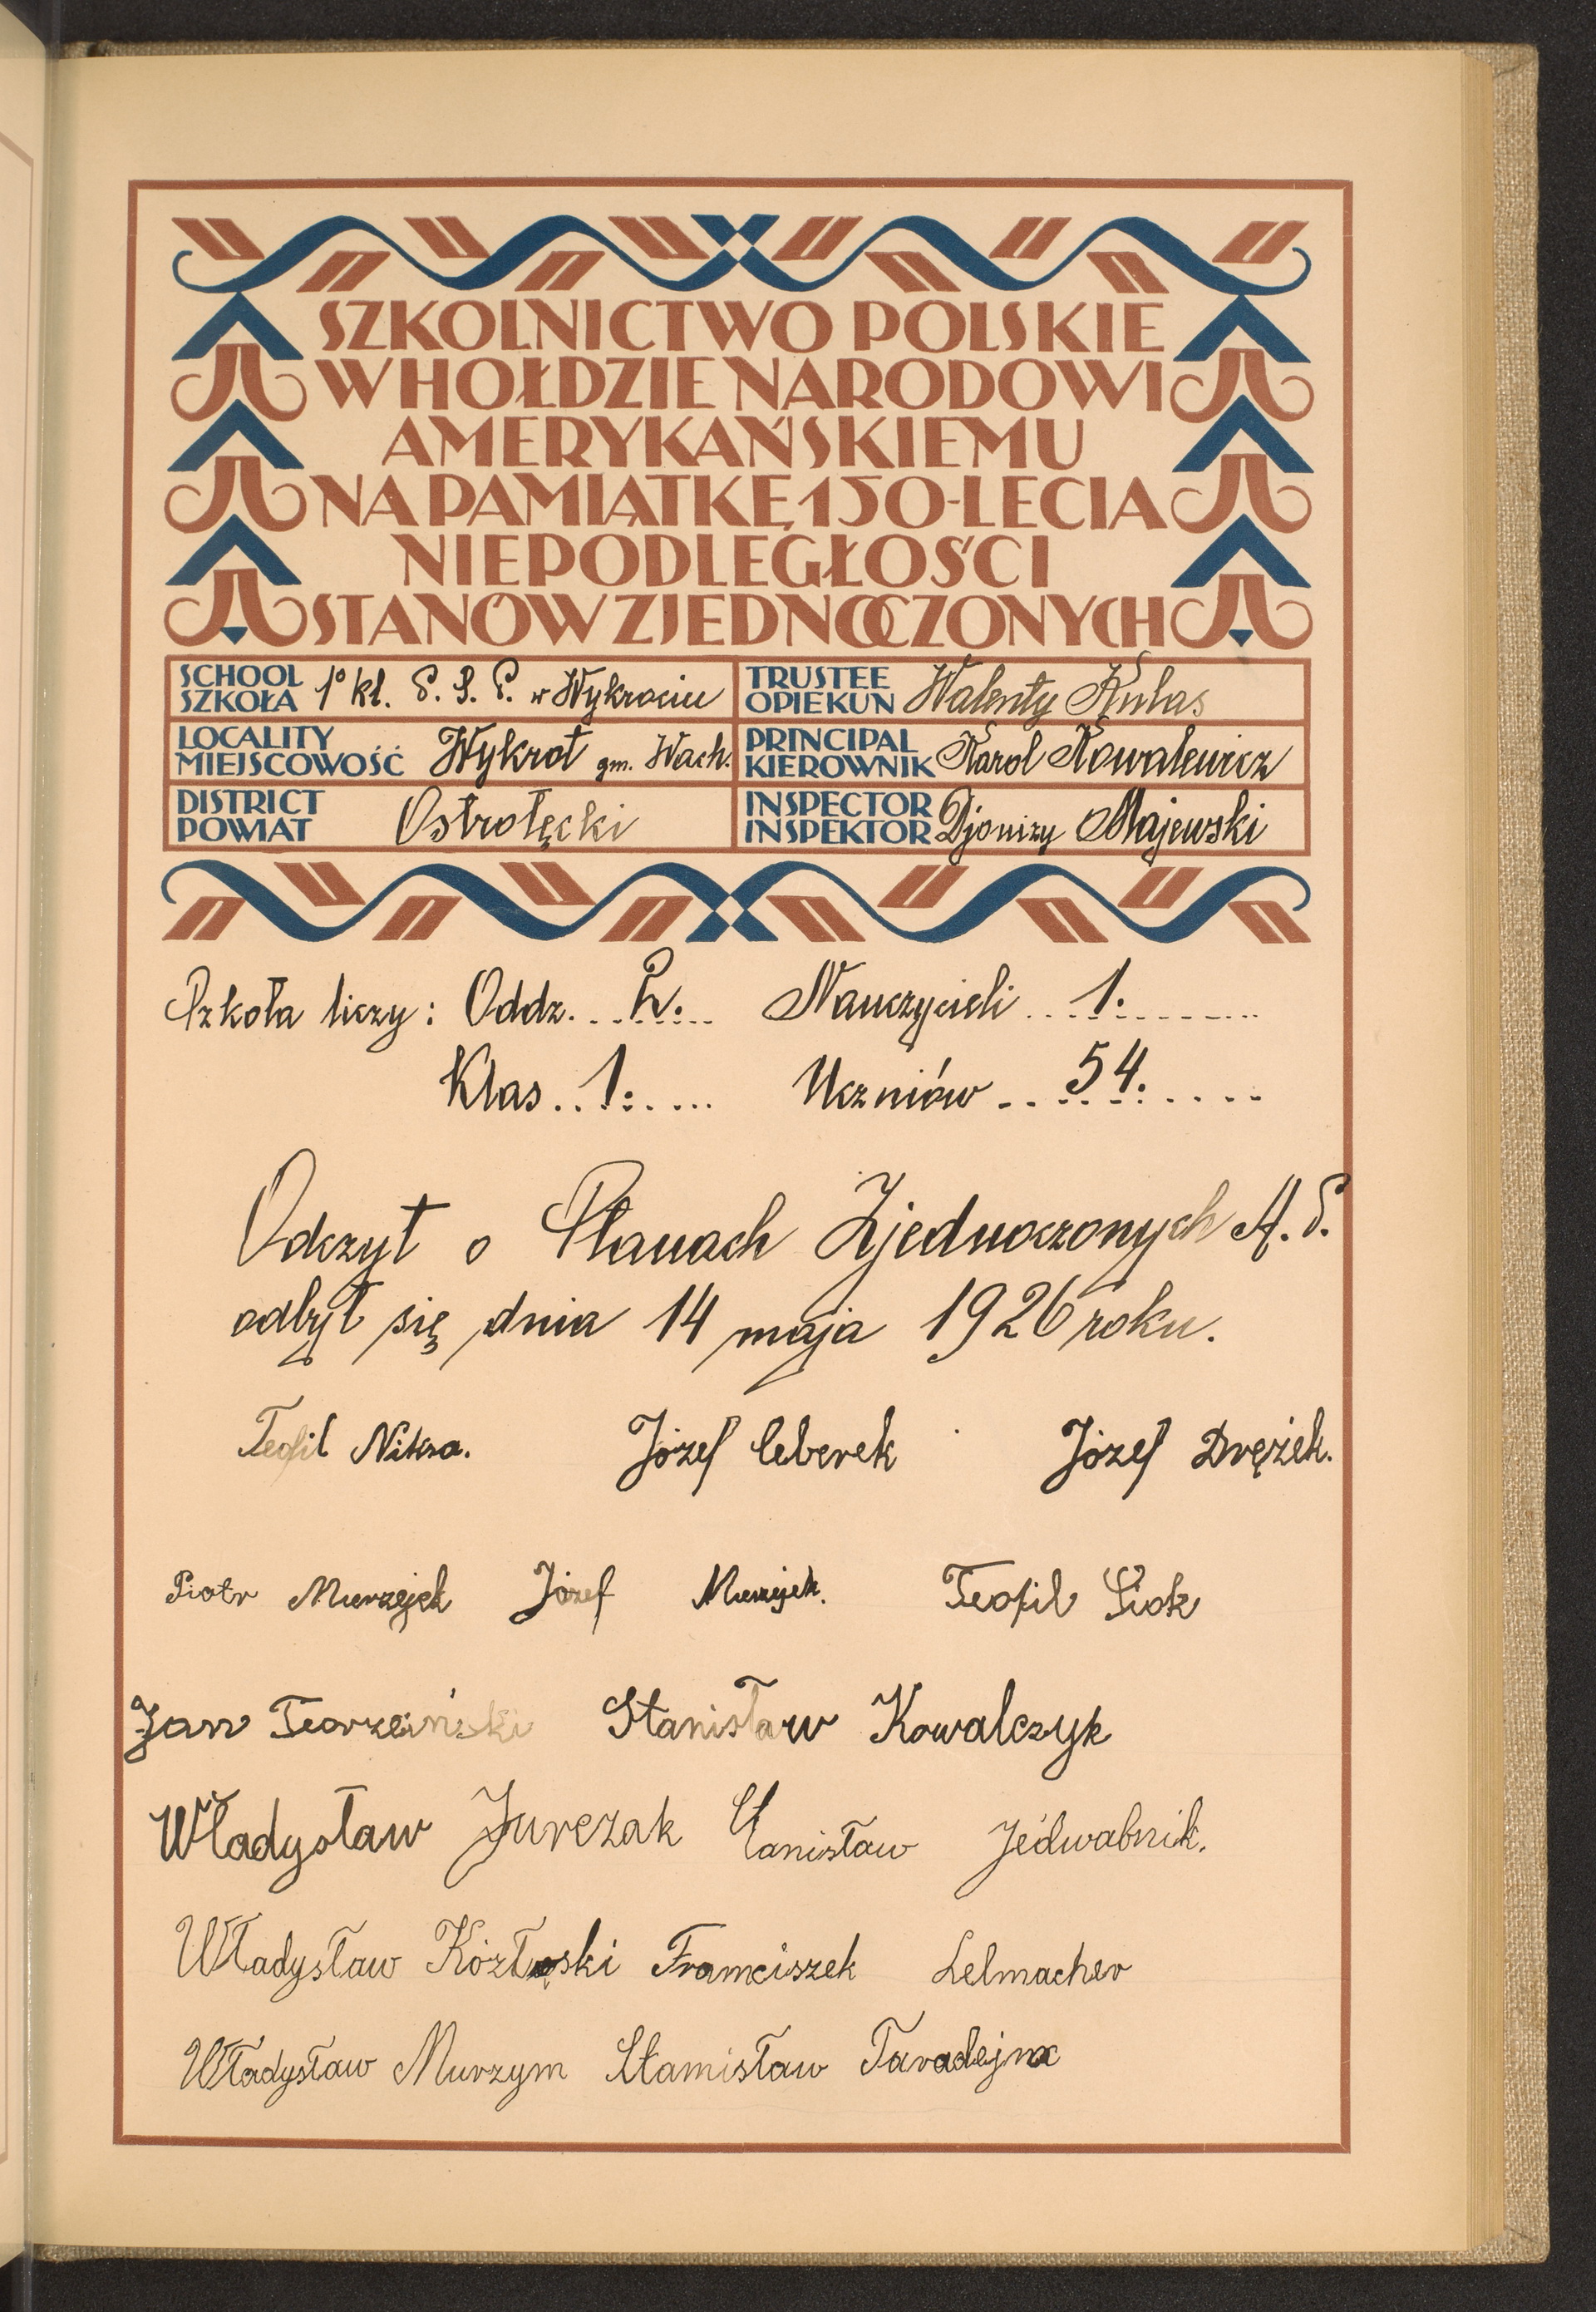 SZKOLNICTWO POLSKIE
W HOŁDZIE NARODOWI
AMERYKAŃSKIEMU
NA PAMIĄTKĘ 150-LECIA
NIEPODLEGŁOŚCI
STANÓW ZJEDNOCZONYCH
SCHOOL
SZKOŁA 1º kl. P. S. P. w Wykrociu
TRUSTEE
OPIEKUN Walenty Kulas
LOCALITY
MIEJSCOWOŚĆ Wykrot gm. Wach.
PRINCIPAL
KIEROWNIK Karol Kowalewicz
DISTRICT
POWIAT Ostrołęcki
INSPECTOR
INSPEKTOR Djonizy Majewski
Szkoła liczy: Oddz. Nauczycieli 1.
Klas 1. Uczniów 54.
Odczyt o Stanach Zjednoczonych A. P.
odbył się dnia 14 maja 1926 roku.
Teofil Niksa. Józef Ceberek Józef Drężek.
Piotr Murzejek Józef Teofil Siok
Jan Stanisław Kowalczyk
Władysław Jurczak Stanisław Jedwabnik.
Władysław Franciszek Lelmacher
Władysław Murzym Stamisław Taradejna